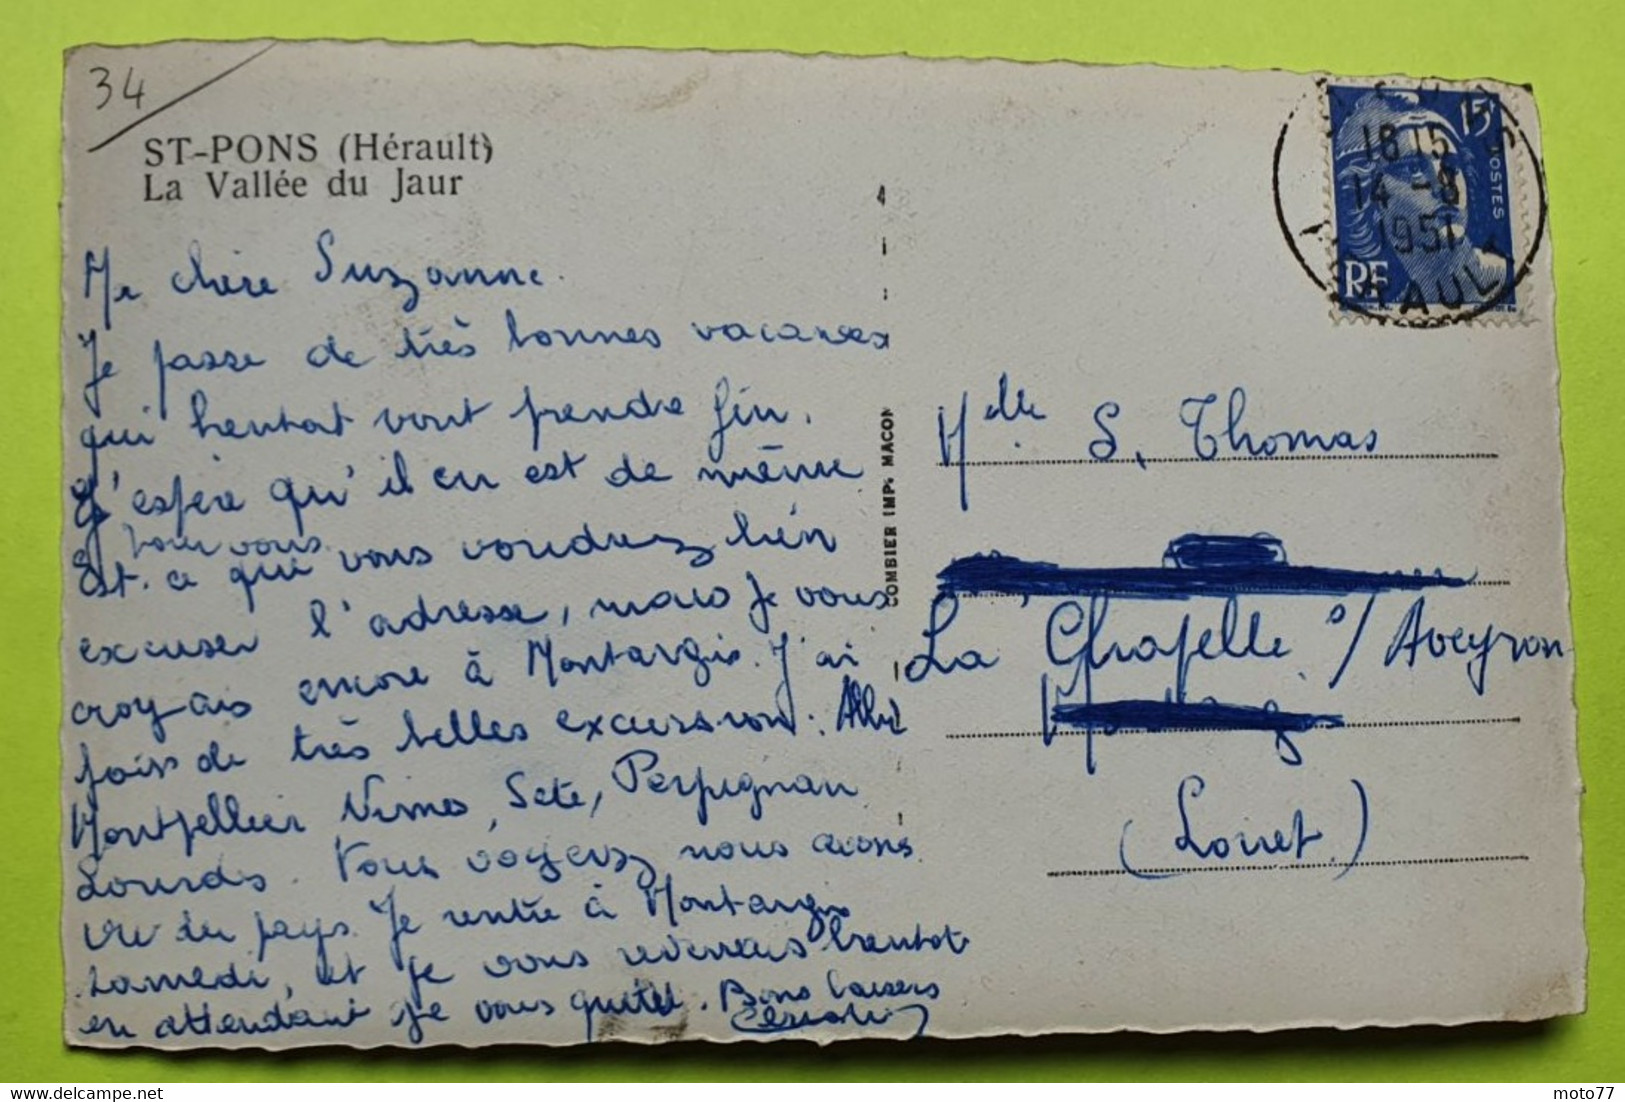 34
ST-PONS (Hérault)
La Vallée du Jaur
Ma chère Suzanne.
Je passe de très bonnes vacances
qui bientôt vont prendre fin.
J'espère qu'il en est de même
pour vous
Est-ce que vous voudrez bien
excuser l'adresse, mais je vous
croyais encore à Montargis. J'ai
fais de très belles excursion: Albi
Montpellier Nimes, Sète, Perpignan
Lourdes. Vous voyez nous avons
vu du pays. Je rentre à Montargis
samedi, et je vous reverrais bientot
en attendant je vous quitte. Bons baisers
4
COMBIER IMP. MACON
15F
POSTES
RF
16 15
14 -8
1951
HERAULT
Melle S. Thomas
La Chapelle s/ Aveyron
(Loiret.)
moto77